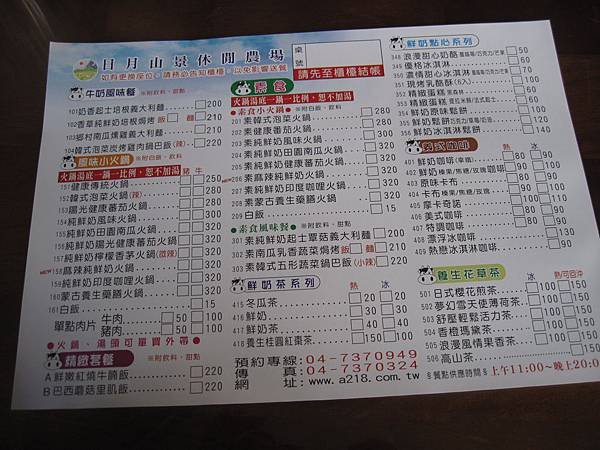 日月山景休閒農場
如有更換座位，請務必告知櫃檯，以免影響送餐
桌號
請先至櫃檯結帳
牛奶風味餐 ※附飲料，甜點
101奶香起士培根義大利麵 200
102香草純鮮奶培根焗烤 飯 麵 210
103鄉村南瓜燻雞義大利麵 200
104韓式泡菜炭烤雞肉鍋巴飯(辣) 220
風味小火鍋 ※附白飯、飲料
火鍋湯底一鍋一比例，恕不加湯
豬 牛
151健康傳統火鍋 250
152韓式泡菜火鍋(辣) 320
153陽光健康蕃茄火鍋 320
154純鮮奶風味火鍋 320
155純鮮奶田園南瓜火鍋 320
156純鮮奶陽光健康蕃茄火鍋 320
157純鮮奶檸檬香茅火鍋(微辣) 320
NEW 158麻辣純鮮奶火鍋 320
159純鮮奶印度咖哩火鍋 320
160蒙古養生藥膳火鍋 320
161白飯 15
單點肉片 牛肉 50 100
豬肉 50 100
●火鍋、湯頭可單買外帶●
精緻套餐 ※附飲料，甜點
A 鮮嫩紅燒牛腩飯 220
B 巴西蘑菇里肌飯 220
素食
火鍋湯底一鍋一比例，恕不加湯
●素食小火鍋● ※附白飯、飲料
201 素韓式泡菜火鍋(辣) 280
202 素健康蕃茄火鍋 320
203 素純鮮奶風味火鍋 320
204 素純鮮奶田園南瓜火鍋 320
205 素純鮮奶健康蕃茄火鍋 320
207 素純鮮奶印度咖哩火鍋 320
208 素蒙古養生藥膳火鍋 320
209 白飯 15
●素食風味餐● ※附飲料，甜點
301 素純鮮奶起士蕈菇義大利麵 200
302 素南瓜乳香蔬菜焗烤 飯 麵 210
303 素韓式五形蔬菜鍋巴飯(小辣) 220
鮮奶茶系列 熱 冰
415 冬瓜茶 20 20
416 鮮奶 30 30
417 鮮奶茶 40 50
418 養生桂圓紅棗茶 100 100
預約專線:04-7370949
傳真:04-7370324
網址:www.a218.com.tw
鮮奶點心系列
348 浪漫甜心奶酪 50
349 優格冰淇淋 60
350 濃情甜心冰淇淋 70
351 現烤乳酪酥(6入) 100
352 精緻蛋糕 100
353 精緻蛋糕 100
354 鮮奶原味鬆餅 100
355 鮮奶鬆餅 120
356 鮮奶冰淇淋鬆餅 140
義式咖啡 熱 冰
401 鮮奶咖啡 80 90
402 鮮奶 咖啡 90 100
403 原味卡布 80 90
404 卡布 90 100
405 摩卡奇諾 100 110
406 美式咖啡 70 80
407 特調咖啡 80 90
408 漂浮冰咖啡 90
409 熱戀冰淇淋咖啡 90
養生花草茶 冰 熱/可回沖
501 日式櫻花煎茶 100 150
502 夢幻雪天使薄荷茶 100 150
503 舒壓輕鬆活力茶 100 150
504 香橙瑪黛茶 100 150
505 浪漫風情果香茶 100 150
506 高山茶 150
§餐點供應時間§上午11:00~晚上20:0